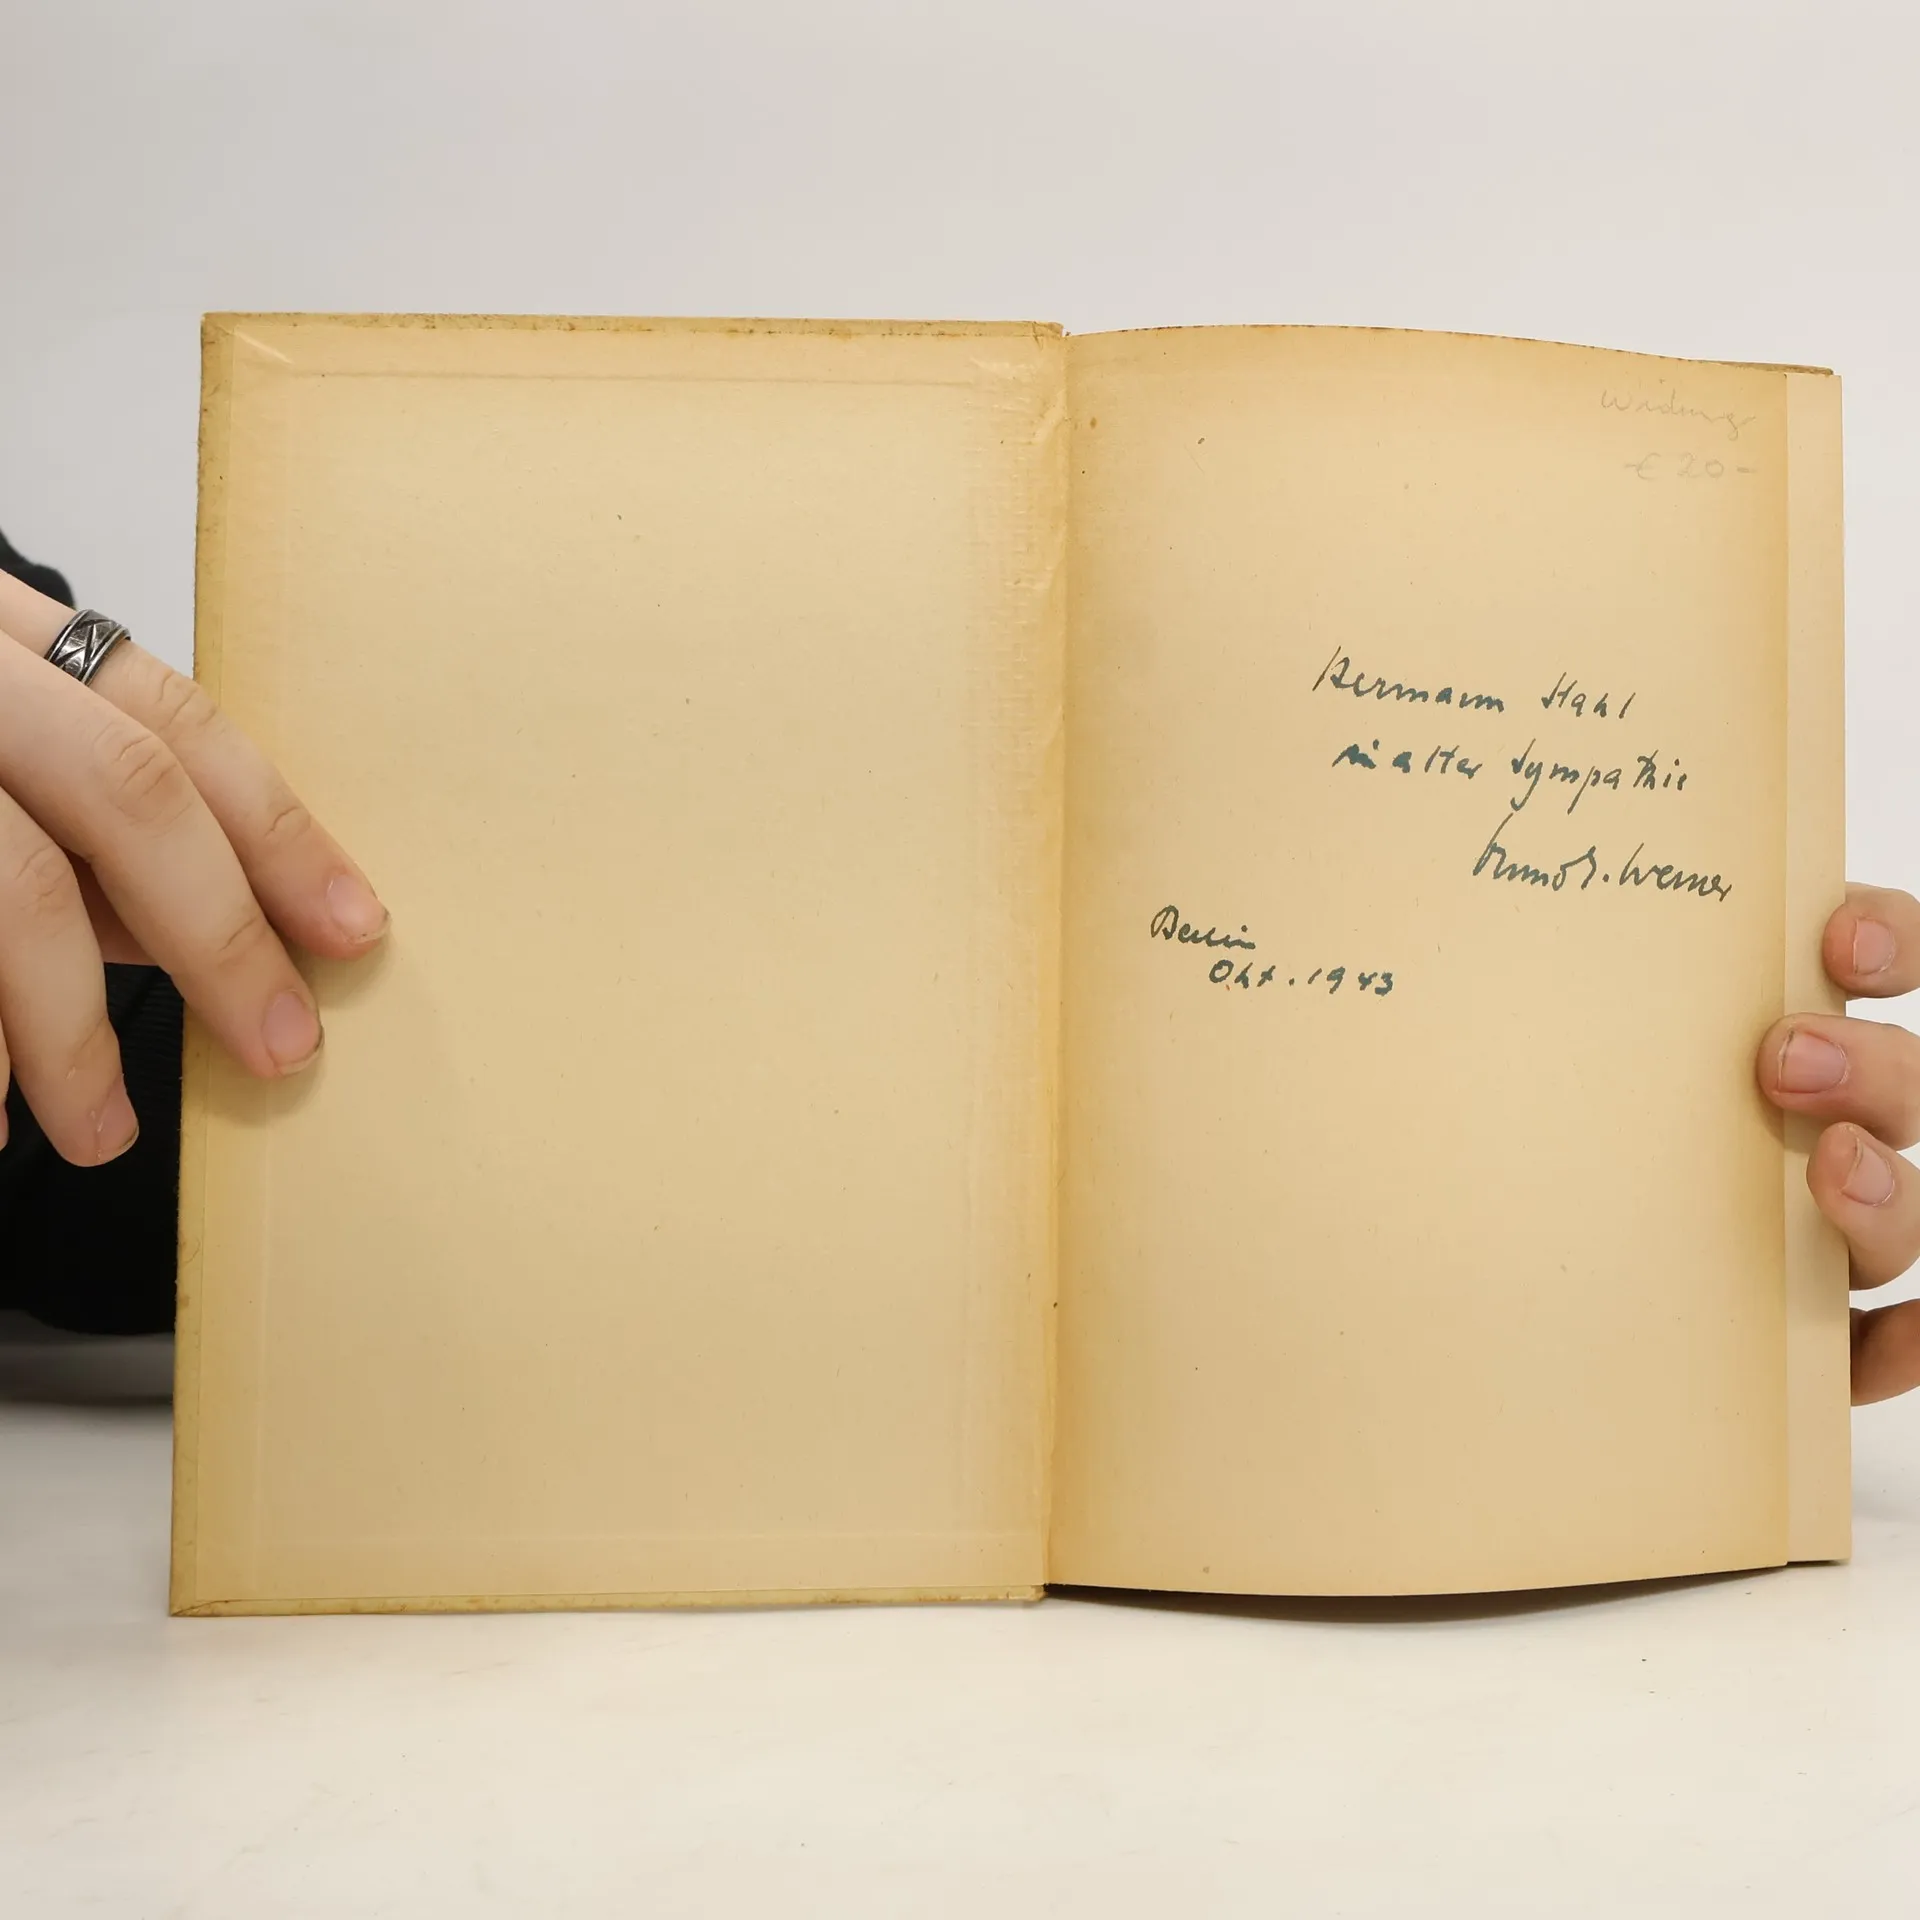 Widmung
€ 20-
Hermann Stahl
in alter Sympathie
Bruno E. Werner
Berlin
Okt. 1943